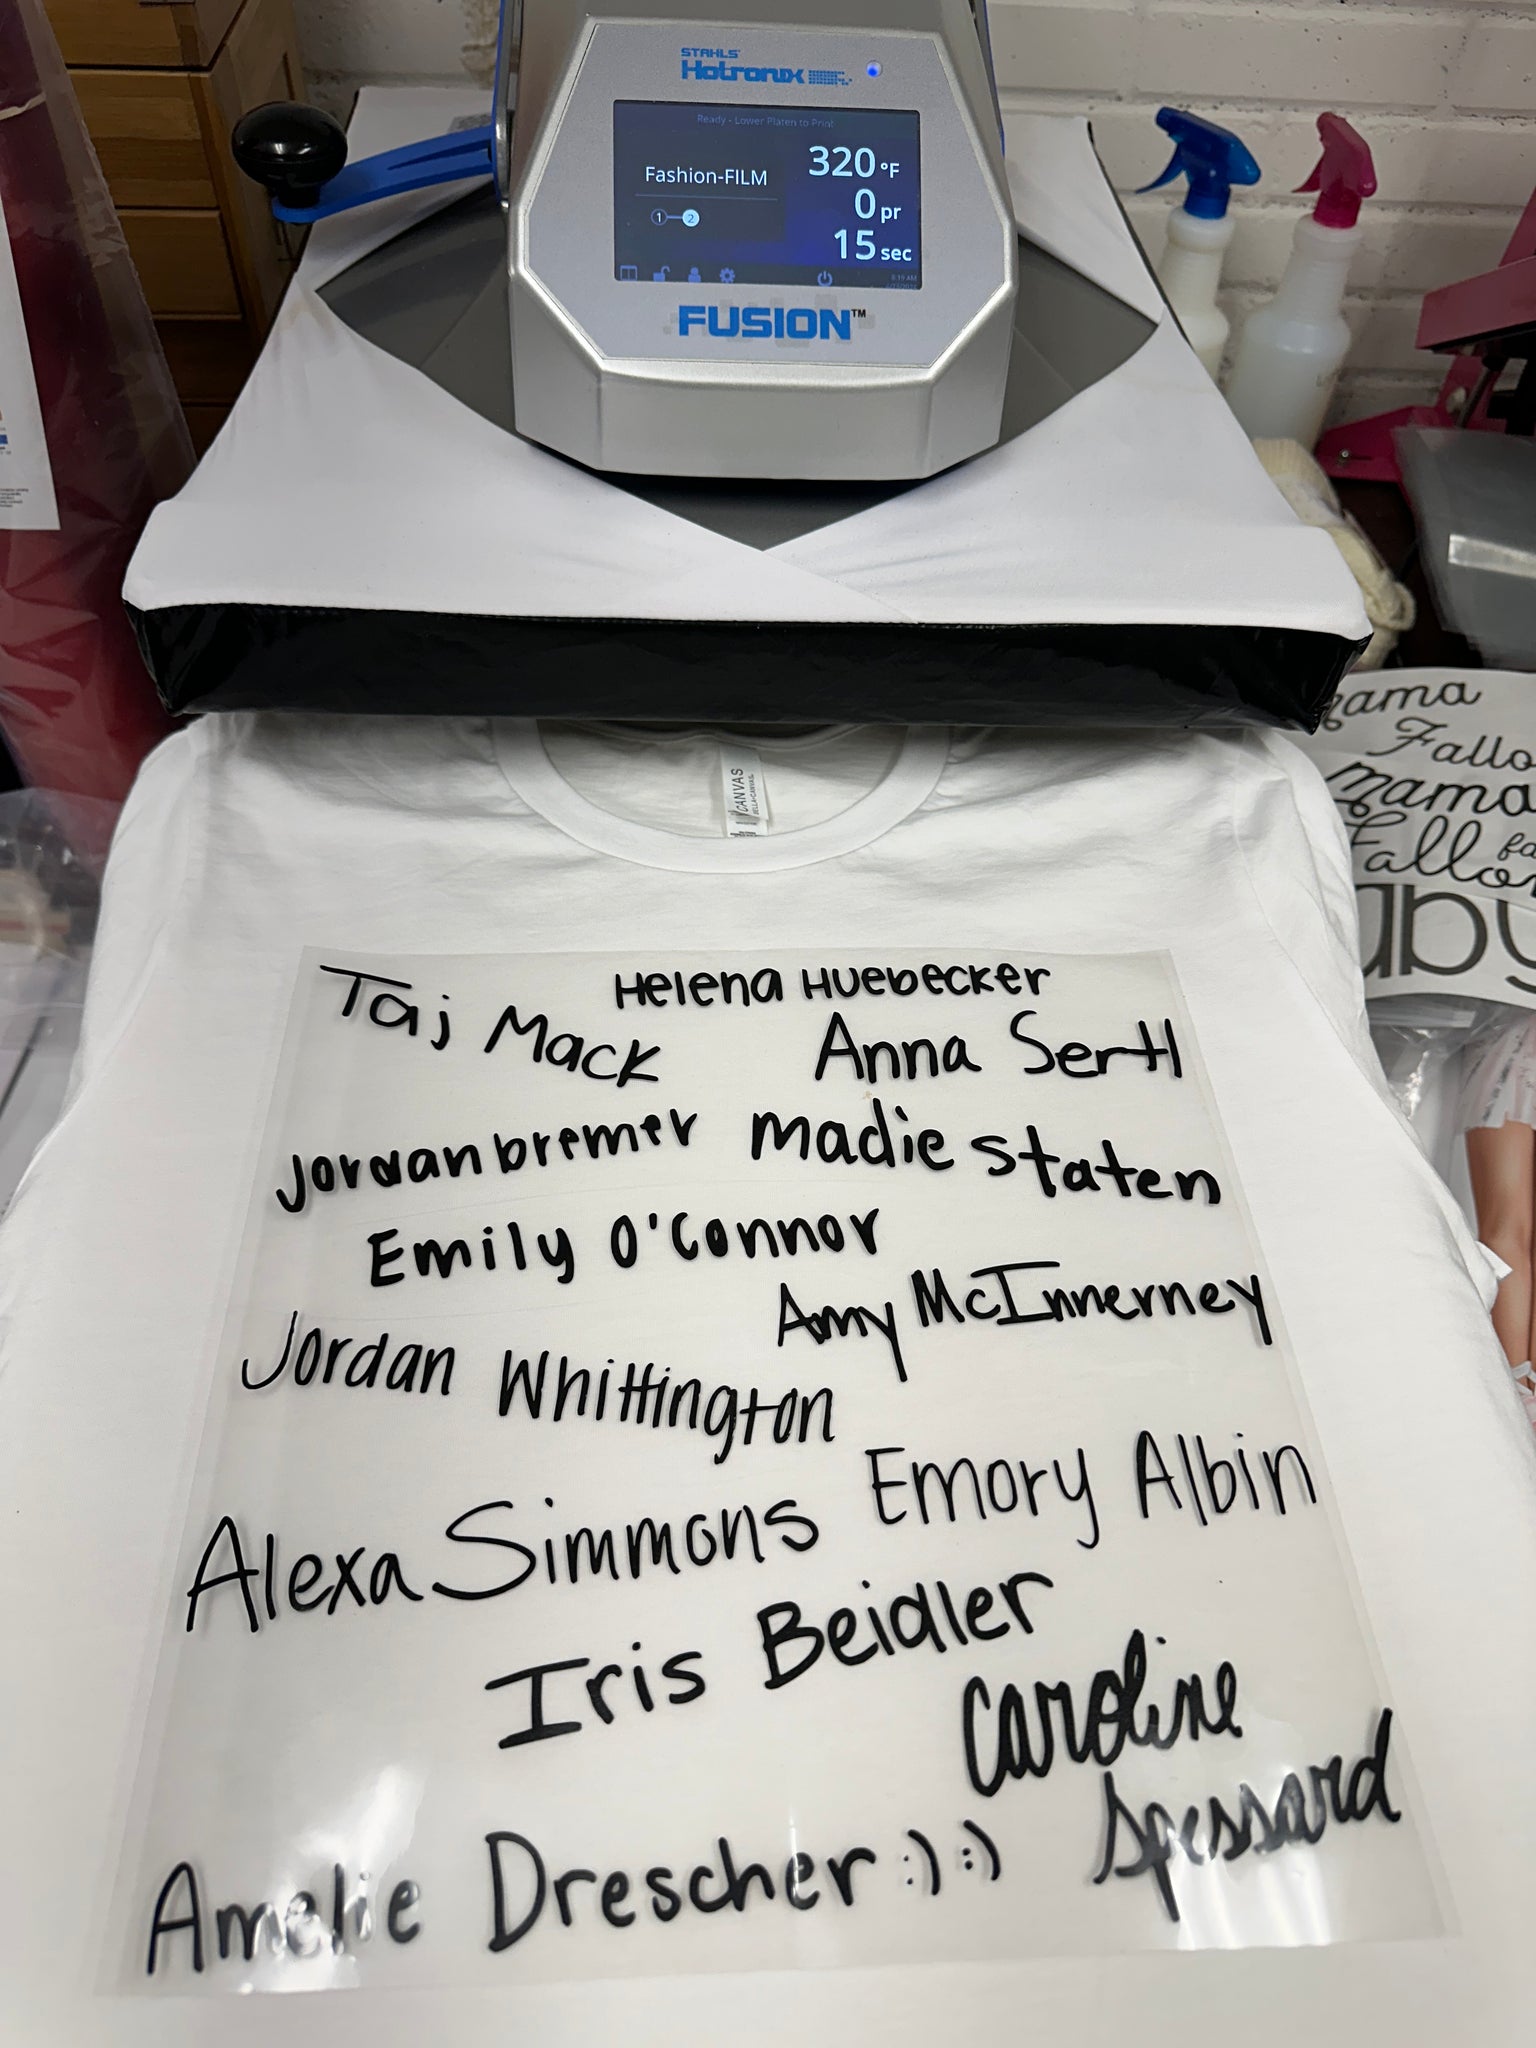 STAHLS'
Hotronix
Ready - Lower Platen to Print
Fashion-FILM
320 °F
0 pr
15 sec
1 2
8:19 AM
FUSION™
CANVAS
BELLA+CANVAS
mama
Fallo
mama
Fallon
fa
aby
Helena Huebecker
Taj Mack
Anna Sertl
Jordan bremer
madie staten
Emily O'Connor
Amy McInnerney
Jordan Whittington
Emory Albin
Alexa Simmons
Iris Beidler
Caroline
Spessard
Amelie Drescher :) :)